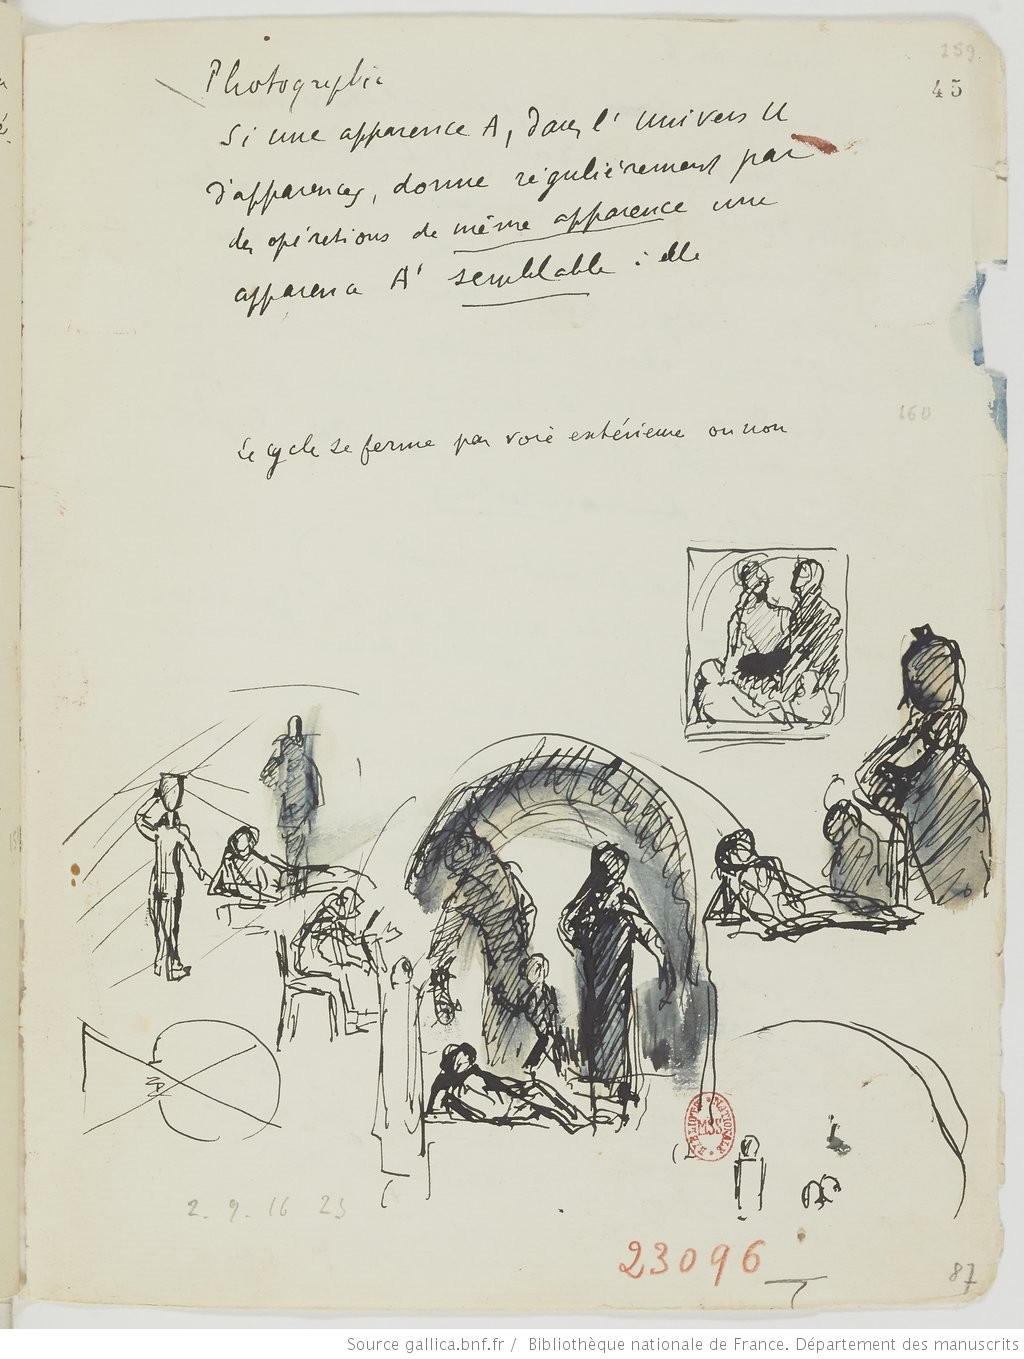 259
45
Photographie
Si une apparence A, dans l'univers U
d'apparences, donne régulièrement par
des opérations de même apparence une
apparence A' semblable : elle
160
Le cycle se ferme par voie extérieure ou non
BIBLIOTHÈQUE NATIONALE
MSS
2. 9. 16 23
23096
87
Source gallica.bnf.fr / Bibliothèque nationale de France. Département des manuscrits